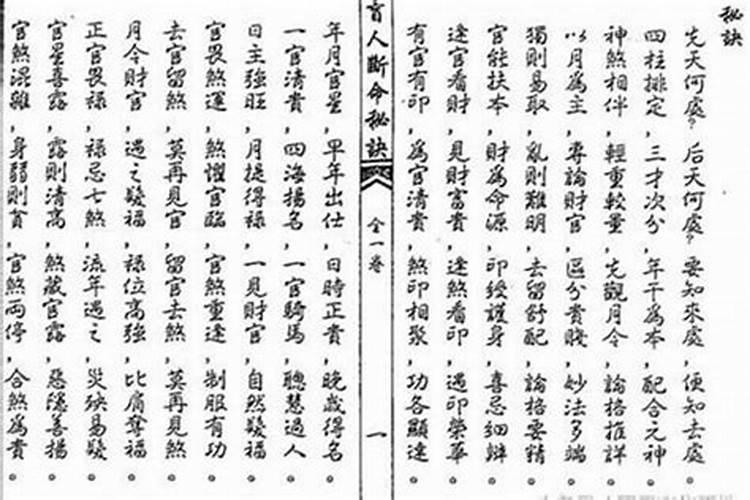 秘訣
先天何處?后天何處?要知來處,便知去處。
四柱排定,三才次分,年干為本,配合元神。
神煞相伴,輕重較量,先觀月令,論格推詳。
以月為主,專論財官,區分貴賤,妙法多端。
獨則易取,亂則難明,去留舒配,論格要精。
官能扶本,財為命源,印綬護身,喜忌細辨。
逢官看財,見財富貴,逢煞看印,遇印榮華。
有官有印,為官清貴,煞印相聚,功各顯達。
盲人斷命秘訣 全一卷 一
年月官星,早年出仕,日時正貴,晚歲得名。
一官清貴,四海揚名,一官騎馬,聰慧過人。
日主強旺,月提得祿,一見財官,自然發福。
官畏煞運,煞懼官臨,官煞重逢,制服有功。
去官留煞,莫再見官,留官去煞,莫再見煞。
月令財官,遇之發福,祿位高強,比肩奪福。
正官畏祿,祿忌七煞,流年遇之,災殃易發。
官星喜露,露則清高,煞藏官露,惡隱善揚。
官煞混雜,身弱則貧,官煞兩停,合煞為貴。